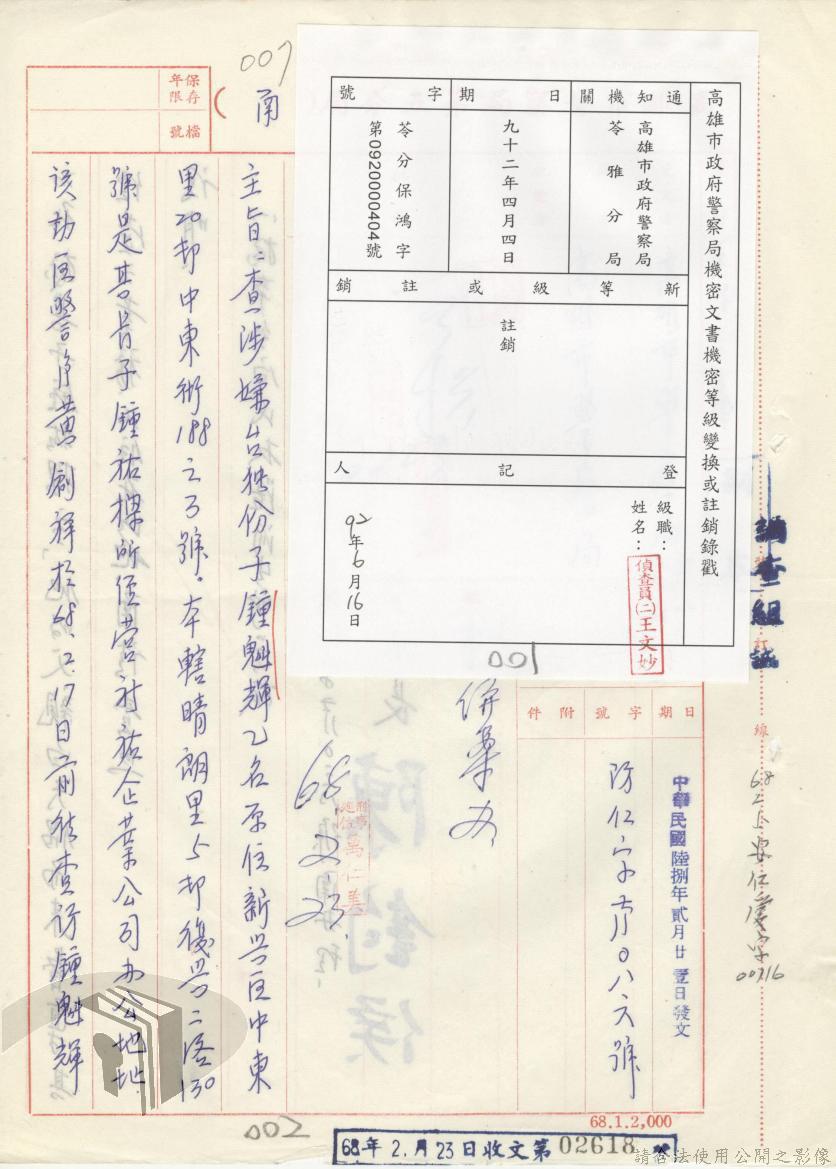 007
保存
年限
檔號
高雄市政府警察局機密文書機密等級變換或註銷錄戳
通知機關
高雄市政府警察局
苓雅分局
日期
九十二年四月四日
字號
苓分保鴻字
第0920000404號
新等級或註銷
註銷
登記人
級職：
姓名：
偵查員(二)王文妙
92年6月16日
001
調查組
訂
線
日期
字號
附件
中華民國陸捌年貳月廿壹日發文
併案办
68
2.23.
主旨：查涉嫌台獨份子鍾魁輝乙名原住新興區中東
里20鄰中東街188之3號。本轄晴朗里5鄰復興二路130
號是其長子鍾祐樑所經營祐企業公司办公地址
該勤區警員黃創祥於68.2.17日前往查訪鍾魁輝
68.1.2,000
002
68年2.月23日收文第02618
00716
請合法使用公開之影像